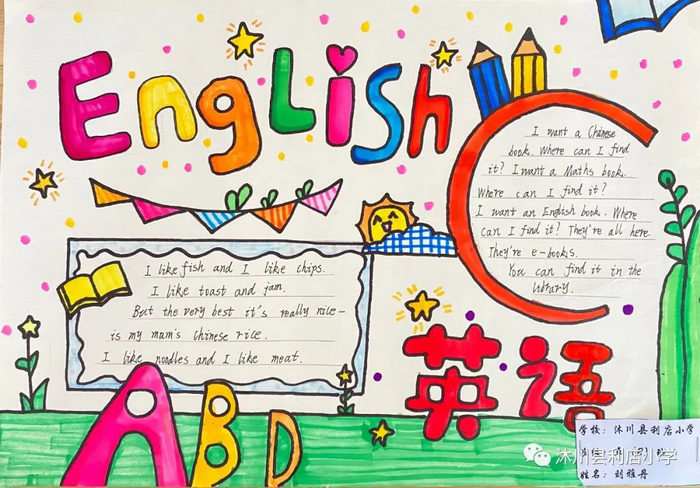 English
I want a Chinese
book. Where can I find
it? I want a Maths book.
Where can I find it?
I want an English book. Where
can I find it? They're all here
They're e-books.
You can find it in the
library.
I like fish and I like chips.
I like toast and jam.
But the very best it's really nice-
is my mum's chinese rice.
I like noodles and I like meat.
英语
ABD
学校：沐川县利店小学
沐川县利店小学
姓名：刘雅丹